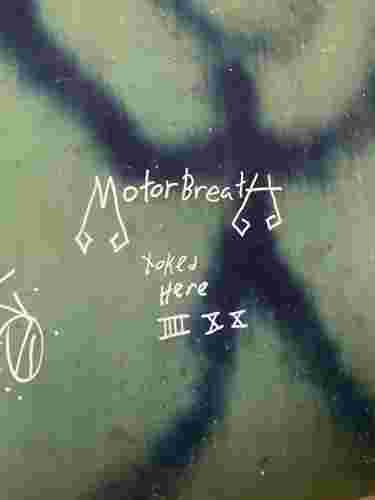 MotorBreatH
Yokes
Here
III XX